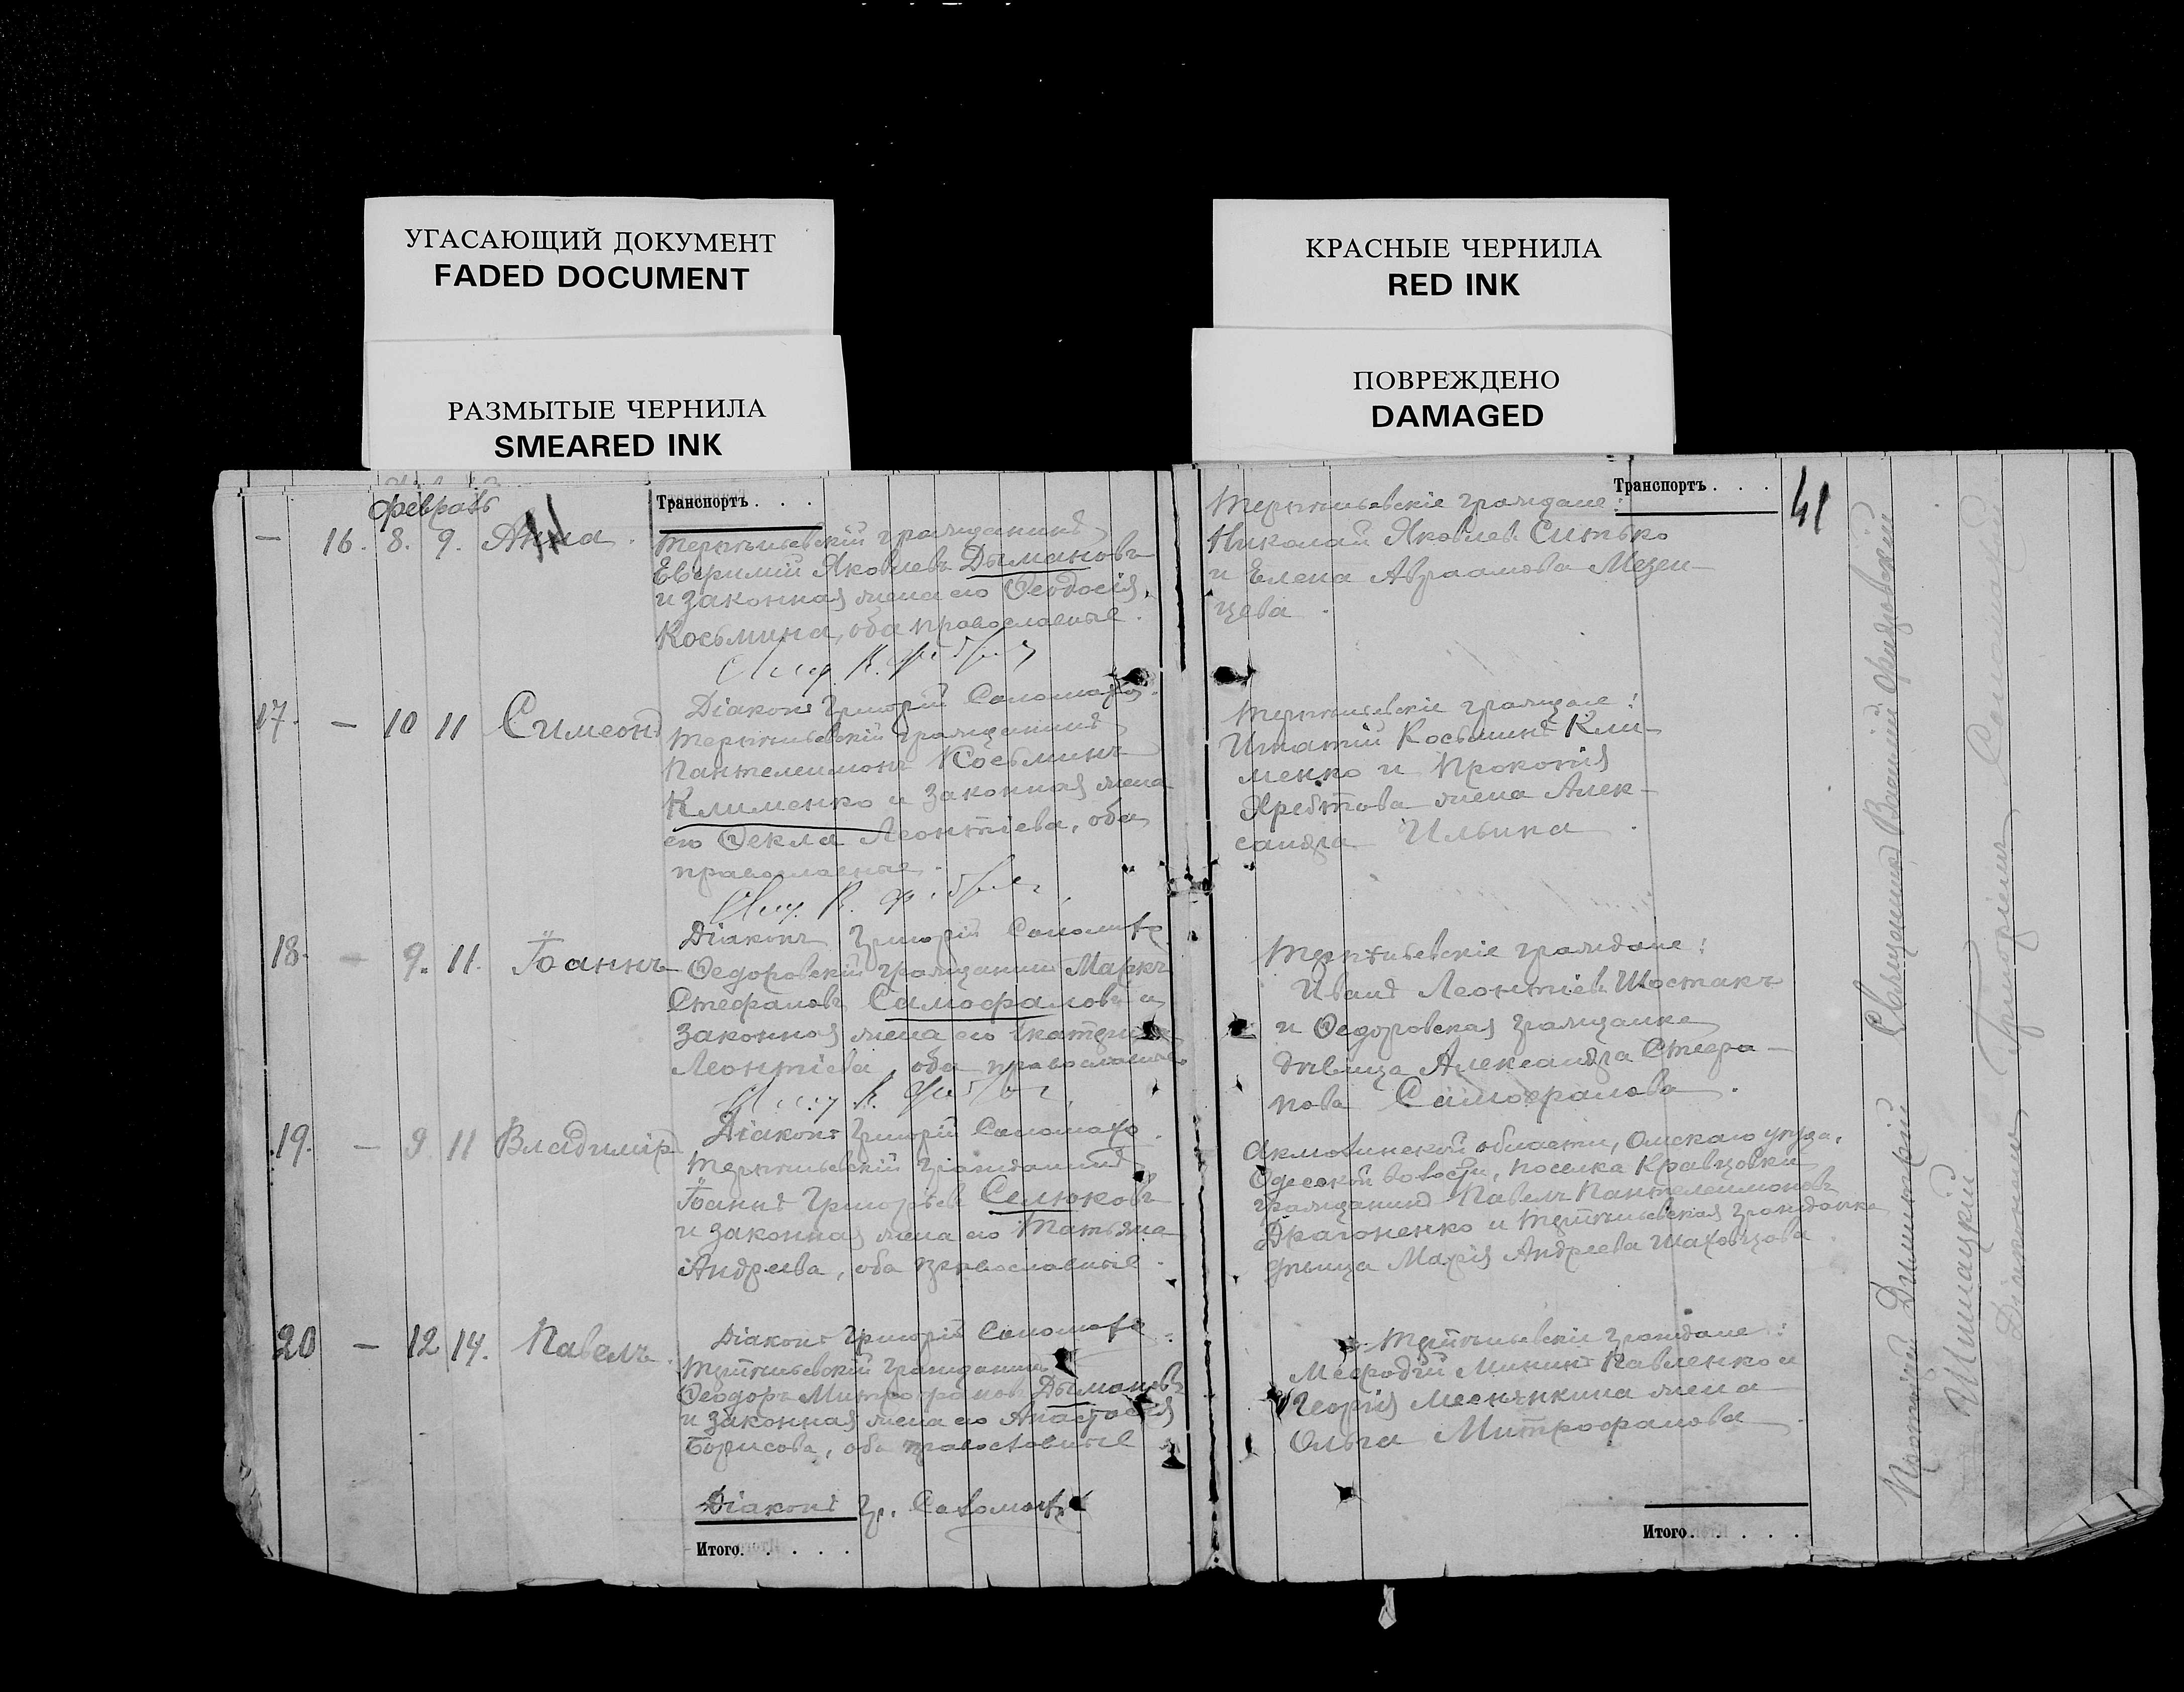 УГАСАЮЩИЙ ДОКУМЕНТ
FADED DOCUMENT
РАЗМЫТЫЕ ЧЕРНИЛА
SMEARED INK
КРАСНЫЕ ЧЕРНИЛА
RED INK
ПОВРЕЖДЕНО
DAMAGED
февраль
Транспортъ . . .
— 16. 8. 9. Анна.
гражданинъ
Евфимій Яковлевъ Дымановъ
и законная жена его Ѳеодосія
Косьмина, оба православные.
Діаконъ Григорій Соломаха.
17. — 10 11 Симеонъ
гражданинъ
Пантелеимонъ Косьминъ
Клименко и законная жена
его Ѳекла Леонтіева, оба
православные.
Діаконъ Григорій Соломаха
18. — 9. 11. Іоаннъ
Ѳедоровскій гражданинъ Маркъ
Стефановъ Самофаловъ и
законная жена его Екатерина
Леонтіева оба православные
Діаконъ Григорій Соломаха.
19. — 9 11 Владиміръ
гражданинъ
Іоаннъ Григорьевъ Селюковъ
и законная жена его Татьяна
Андреева, оба православные.
Діаконъ Григорій Соломаха.
20 — 12 14. Павелъ.
гражданинъ
Ѳеодоръ Митрофановъ Дымановъ
и законная жена его Анастасія
Борисова, оба православные
Діаконъ Гр. Соломаха
Итого. . . . .
Транспортъ . . .
41
граждане:
Николай Яковлевъ Ситько
и Елена Авраамова Мезен-
цева.
граждане:
Игнатій Косьминъ Кли-
менко и Прокопія
Хребтова жена Алек-
сандра Ильина.
граждане:
Иванъ Леонтіевъ Шостакъ
и Ѳедоровская гражданка
дѣвица Александра Стефа-
нова Самофалова.
Акмолинской области, Омскаго уѣзда,
Одесской волости, поселка Кравцовки
гражданинъ Павелъ Пантелеимоновъ
Драгоненко и гражданка
дѣвица Марія Андреева Шаховцова.
граждане:
Меѳодій Мининъ Павленко и
Георгія жена
Ольга Митрофанова.
Итого. . . . .
Протоіерей Димитрій Шишацкій
Священникъ Василій
Діаконъ Григорій Соломаха